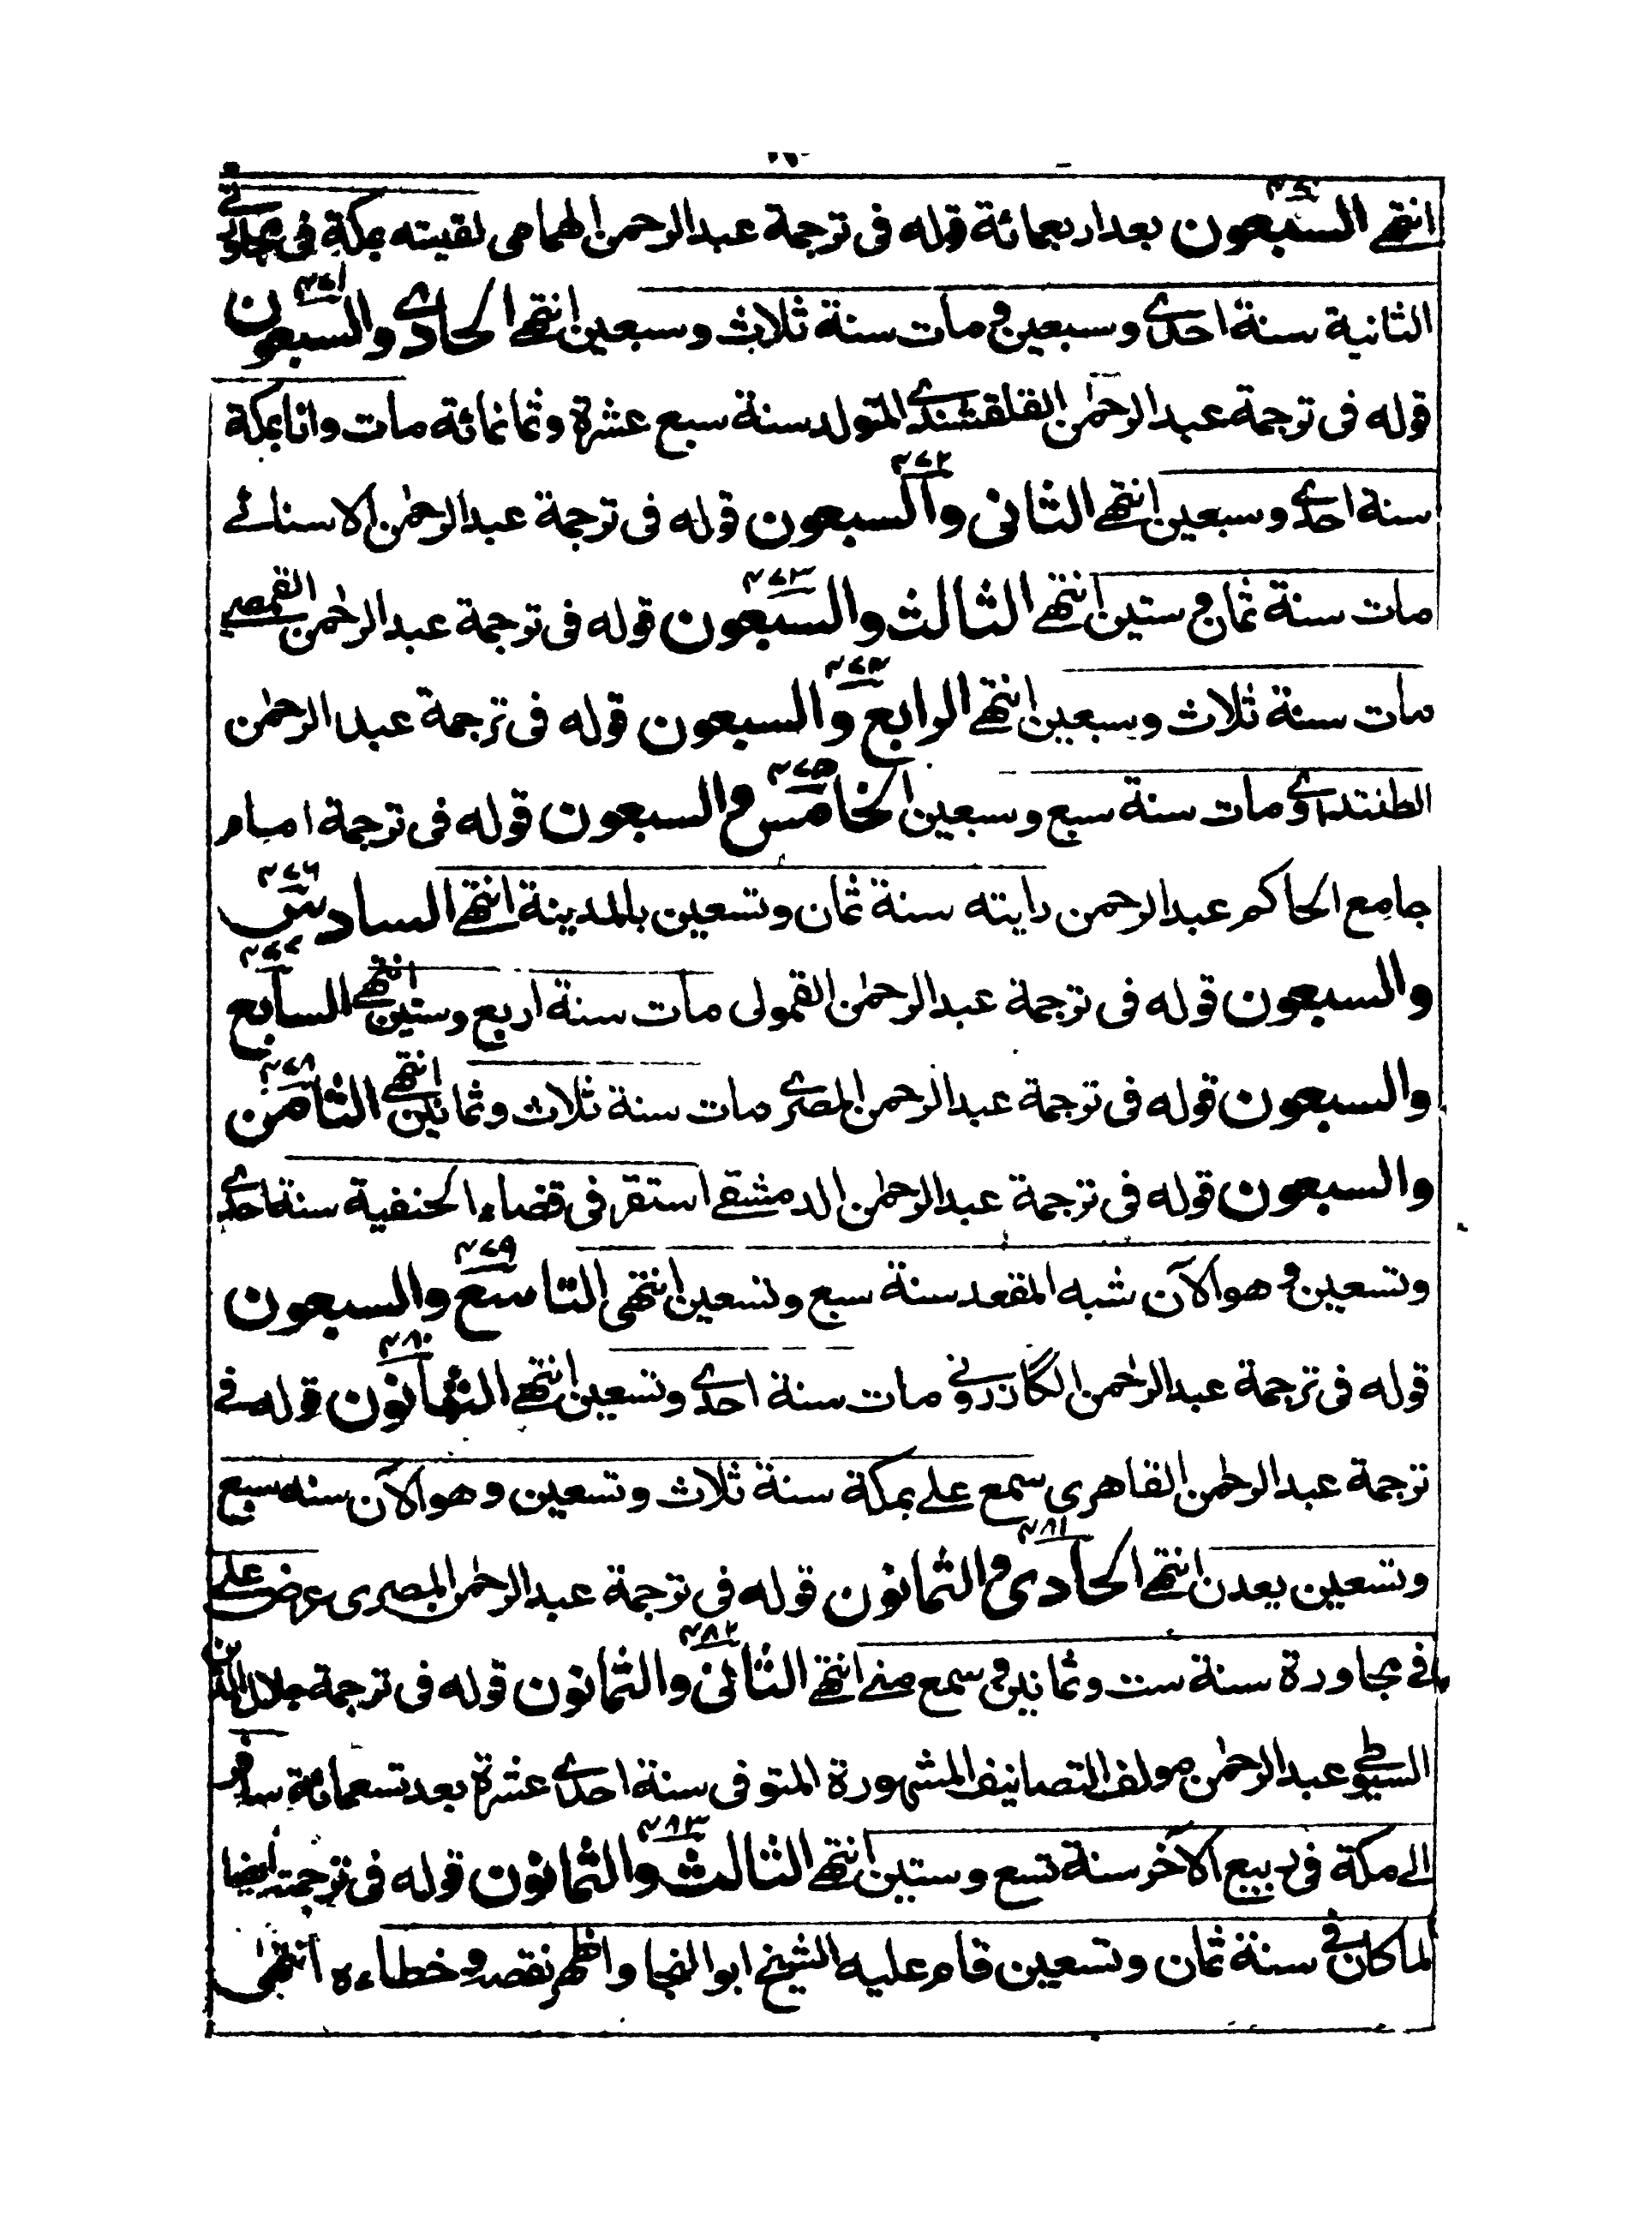 انتهے السبعون بعد اربعمائة قوله فى ترجمة عبدالرحمن الهمامى لقيته بمكة فى مجاورتى
الثانية سنة احدے وسبعين و مات سنة ثلاث وسبعين انتهے الحادے والسبعون
قوله فى ترجمة عبدالرحمٰن القلقشندے المتولد سنة سبع عشرة وثمانمائة مات وانا بمكة
سنة احدے وسبعين انتهے الثانى والسبعون قوله فى ترجمة عبدالرحمٰن الاسنائے
مات سنة ثمان و ستين انتهے الثالث والسبعون قوله فى ترجمة عبدالرحمٰن القمصے
مات سنة ثلاث وسبعين انتهے الرابع والسبعون قوله فى ترجمة عبدالرحمٰن
الطنتداوے مات سنة سبع وسبعين الخامس و السبعون قوله فى ترجمة امام
جامع الحاكم عبدالرحمن رايته سنة ثمان وتسعين بالمدينة انتهے السادس
والسبعون قوله فى ترجمة عبدالرحمٰن القمولى مات سنة اربع وستين انتهے السابع
والسبعون قوله فى ترجمة عبدالرحمن المصرے مات سنة ثلاث وثمانين انتهے الثامن
والسبعون قوله فى ترجمة عبدالرحمٰن الدمشقے استقر فى قضاء الحنفية سنة احدے
وتسعين و هو الآن شبه المقعد سنة سبع وتسعين انتهى التاسع والسبعون
قوله فى ترجمة عبدالرحٰمن الگازرونے مات سنة احدے وتسعين انتهے الثمانون قوله فے
ترجمة عبدالرحٰمن القاهرى سمع علے بمكة سنة ثلاث وتسعين وهو الآن سنه سبع
وتسعين بعدن انتهے الحادى و الثمانون قوله فى ترجمة عبدالرحمٰن المصرى عرض علے
فے مجاورة سنة ست وثمانين و سمع منے انتهے الثانى والثمانون قوله فى ترجمة جلال الدين
السيوطے عبدالرحمٰن مولف التصانيف المشهورة المتوفى سنة احدے عشرة بعد تسعمائة سافر
الے مكة فى ربيع الآخر سنة تسع وستين انتهے الثالث والثمانون قوله فى ترجمته ايضا
لما كان فے سنة ثمان وتسعين قام عليه الشيخ ابو النجا واظهر نقصه و خطاءه انتهى